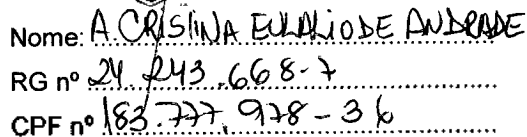 Nome: A. CRISTINA EULALIO DE ANDRADE
RG nº 24.243.668-7
CPF nº 183.777.978-36